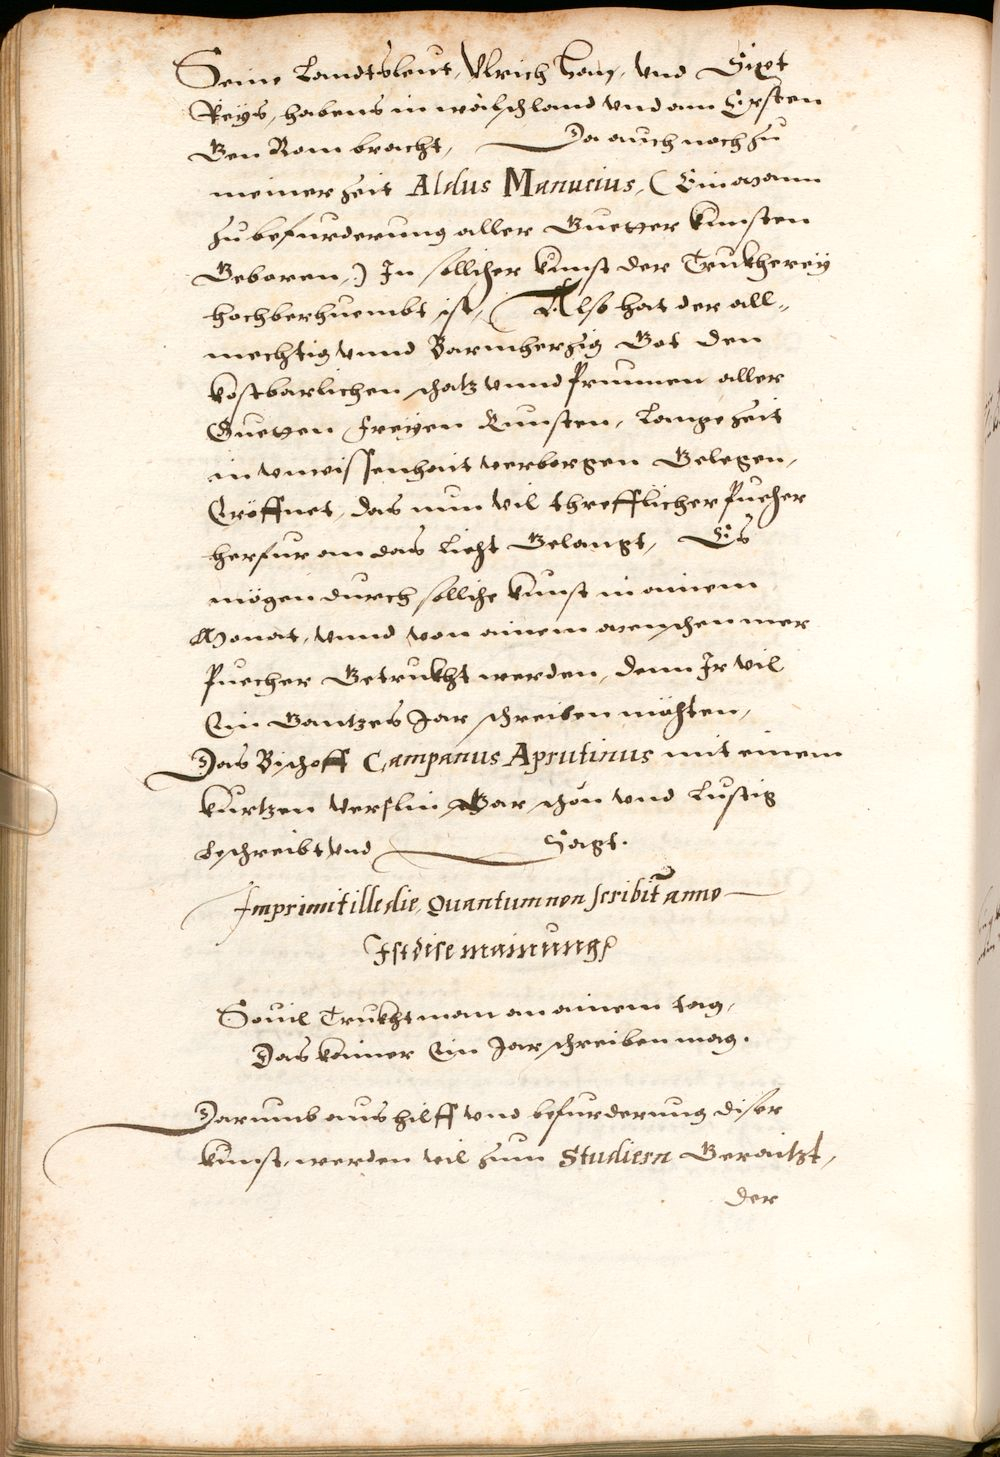 Seine Landtsleut, Ulrich Han, und Sixt
Reys, habens in wälschland und am Ersten
Gen Rom bracht, Da auch noch zu
meiner zeit Aldus Manucius, (Ein mann
zu befurderung aller Guetter kunsten
Geboren,) In sollicher kunst der Trukherey
hochberhuembt ist, Also hat der all-
mechtig unnd Barmhertzig Got den
kostbarlichen schatz unnd Prunnen aller
Guetten freyen Kunsten, Lange zeit
in unwissenhait verborgen Gelegen,
Eröffnet, das nun vil threfflicher Puecher
herfur an das Liecht Gelangt, Es
mögen durch solliche kunst in ainem
Monat, unnd von ainem menschen mer
Puecher Getrukht werden, denn Ir vil
Ein Gantzes Jar schreiben möchten,
Das Bischoff Campanus Aprutinus mit einem
kurtzen Verslin Gar schön und Lustig
beschreibt und Sagt.
Imprimit ille die, Quantum non scribit anno
Ist dise mainung
Sovil Trukht man an ainem tag,
Das kainer Ein Jar schreiben mag.
Darumb aus hilff und befurderung diser
kunst, werden vil zum Studiern Geraitzt,
der